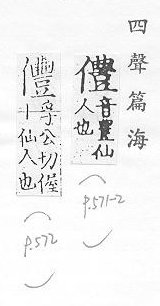 四聲篇海
僼 音豐仙
人也
(p.571-2)
孚公切偓
仙人也
(p.572)